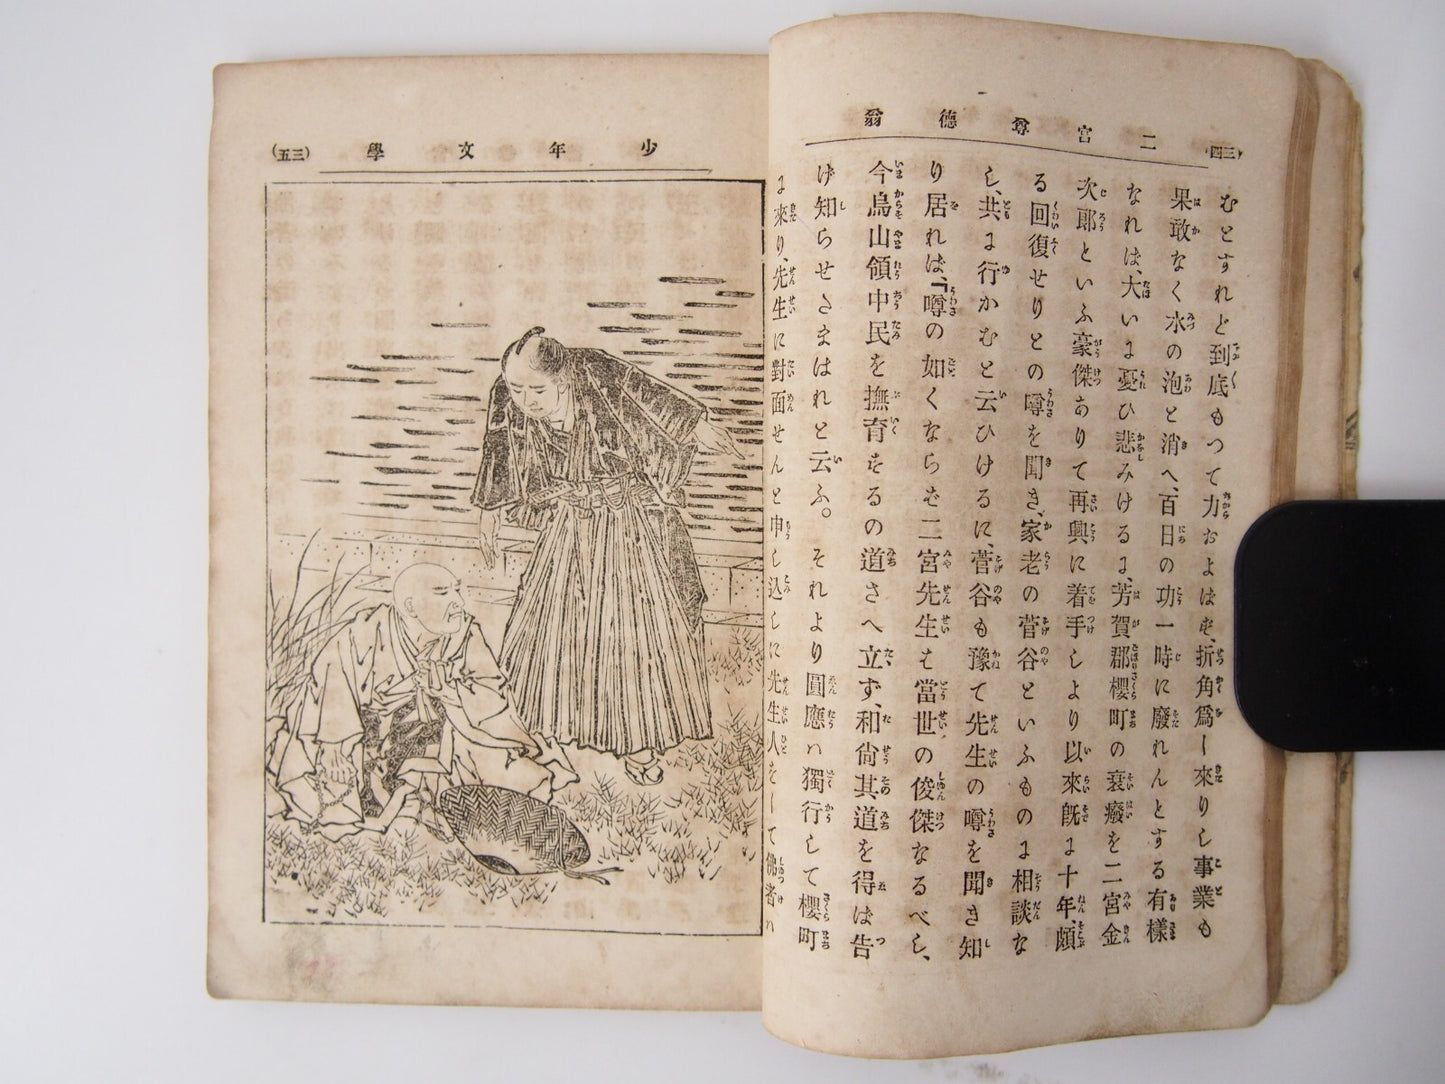 二宮尊德翁
(三四)
むとすれど到底もつて力およばず、折角爲し來りし事業も
果敢なく水の泡と消へ、百日の功一時に廢れんとする有樣
なれば、大いに憂ひ悲みけるに、芳賀郡櫻町の衰癈を二宮金
次郎といふ豪傑ありて再興に着手しより以來旣に十年、頗
る回復せりとの噂を聞き、家老の菅谷といふものに相談な
し、共に行かむと云ひけるに、菅谷も豫て先生の噂を聞き知
り居れば、「噂の如くならば二宮先生は當世の俊傑なるべし、
今烏山領中民を撫育するの道さへ立ず、和尙其道を得ば吿
げ知らせたまはれと云ふ。それより圓應ハ獨行して櫻町
に來り、先生に對面せんと申し込しに先生人をして佛者ハ
少年文學
(三五)